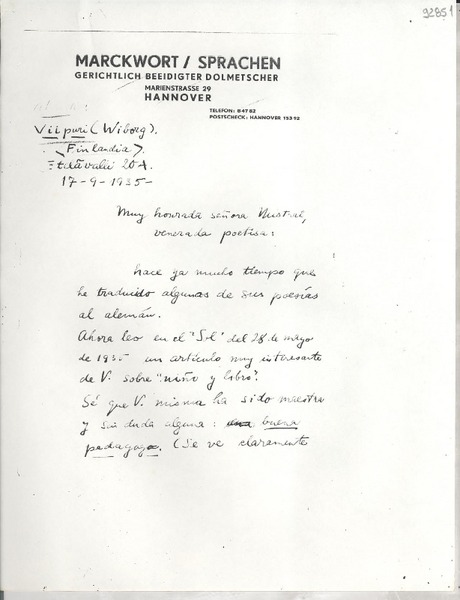 92851
MARCKWORT / SPRACHEN
GERICHTLICH BEEIDIGTER DOLMETSCHER
MARIENSTRASSE 29
HANNOVER
TELEFON: 84782
POSTSCHECK: HANNOVER 15392
Viipuri (Wiborg).
(Finlandia).
20 A.
17-9-1935-
Muy honrada señora Mistral,
venerada poetisa:
hace ya mucho tiempo que
he traducido algunas de sus poesías
al alemán.
Ahora leo en el "Sol" del 28 de mayo
de 1935 un artículo muy interesante
de V. sobre "niño y libro".
Sé que V. misma ha sido maestra
y sin duda alguna: buena
pedagoga. (Se ve claramente